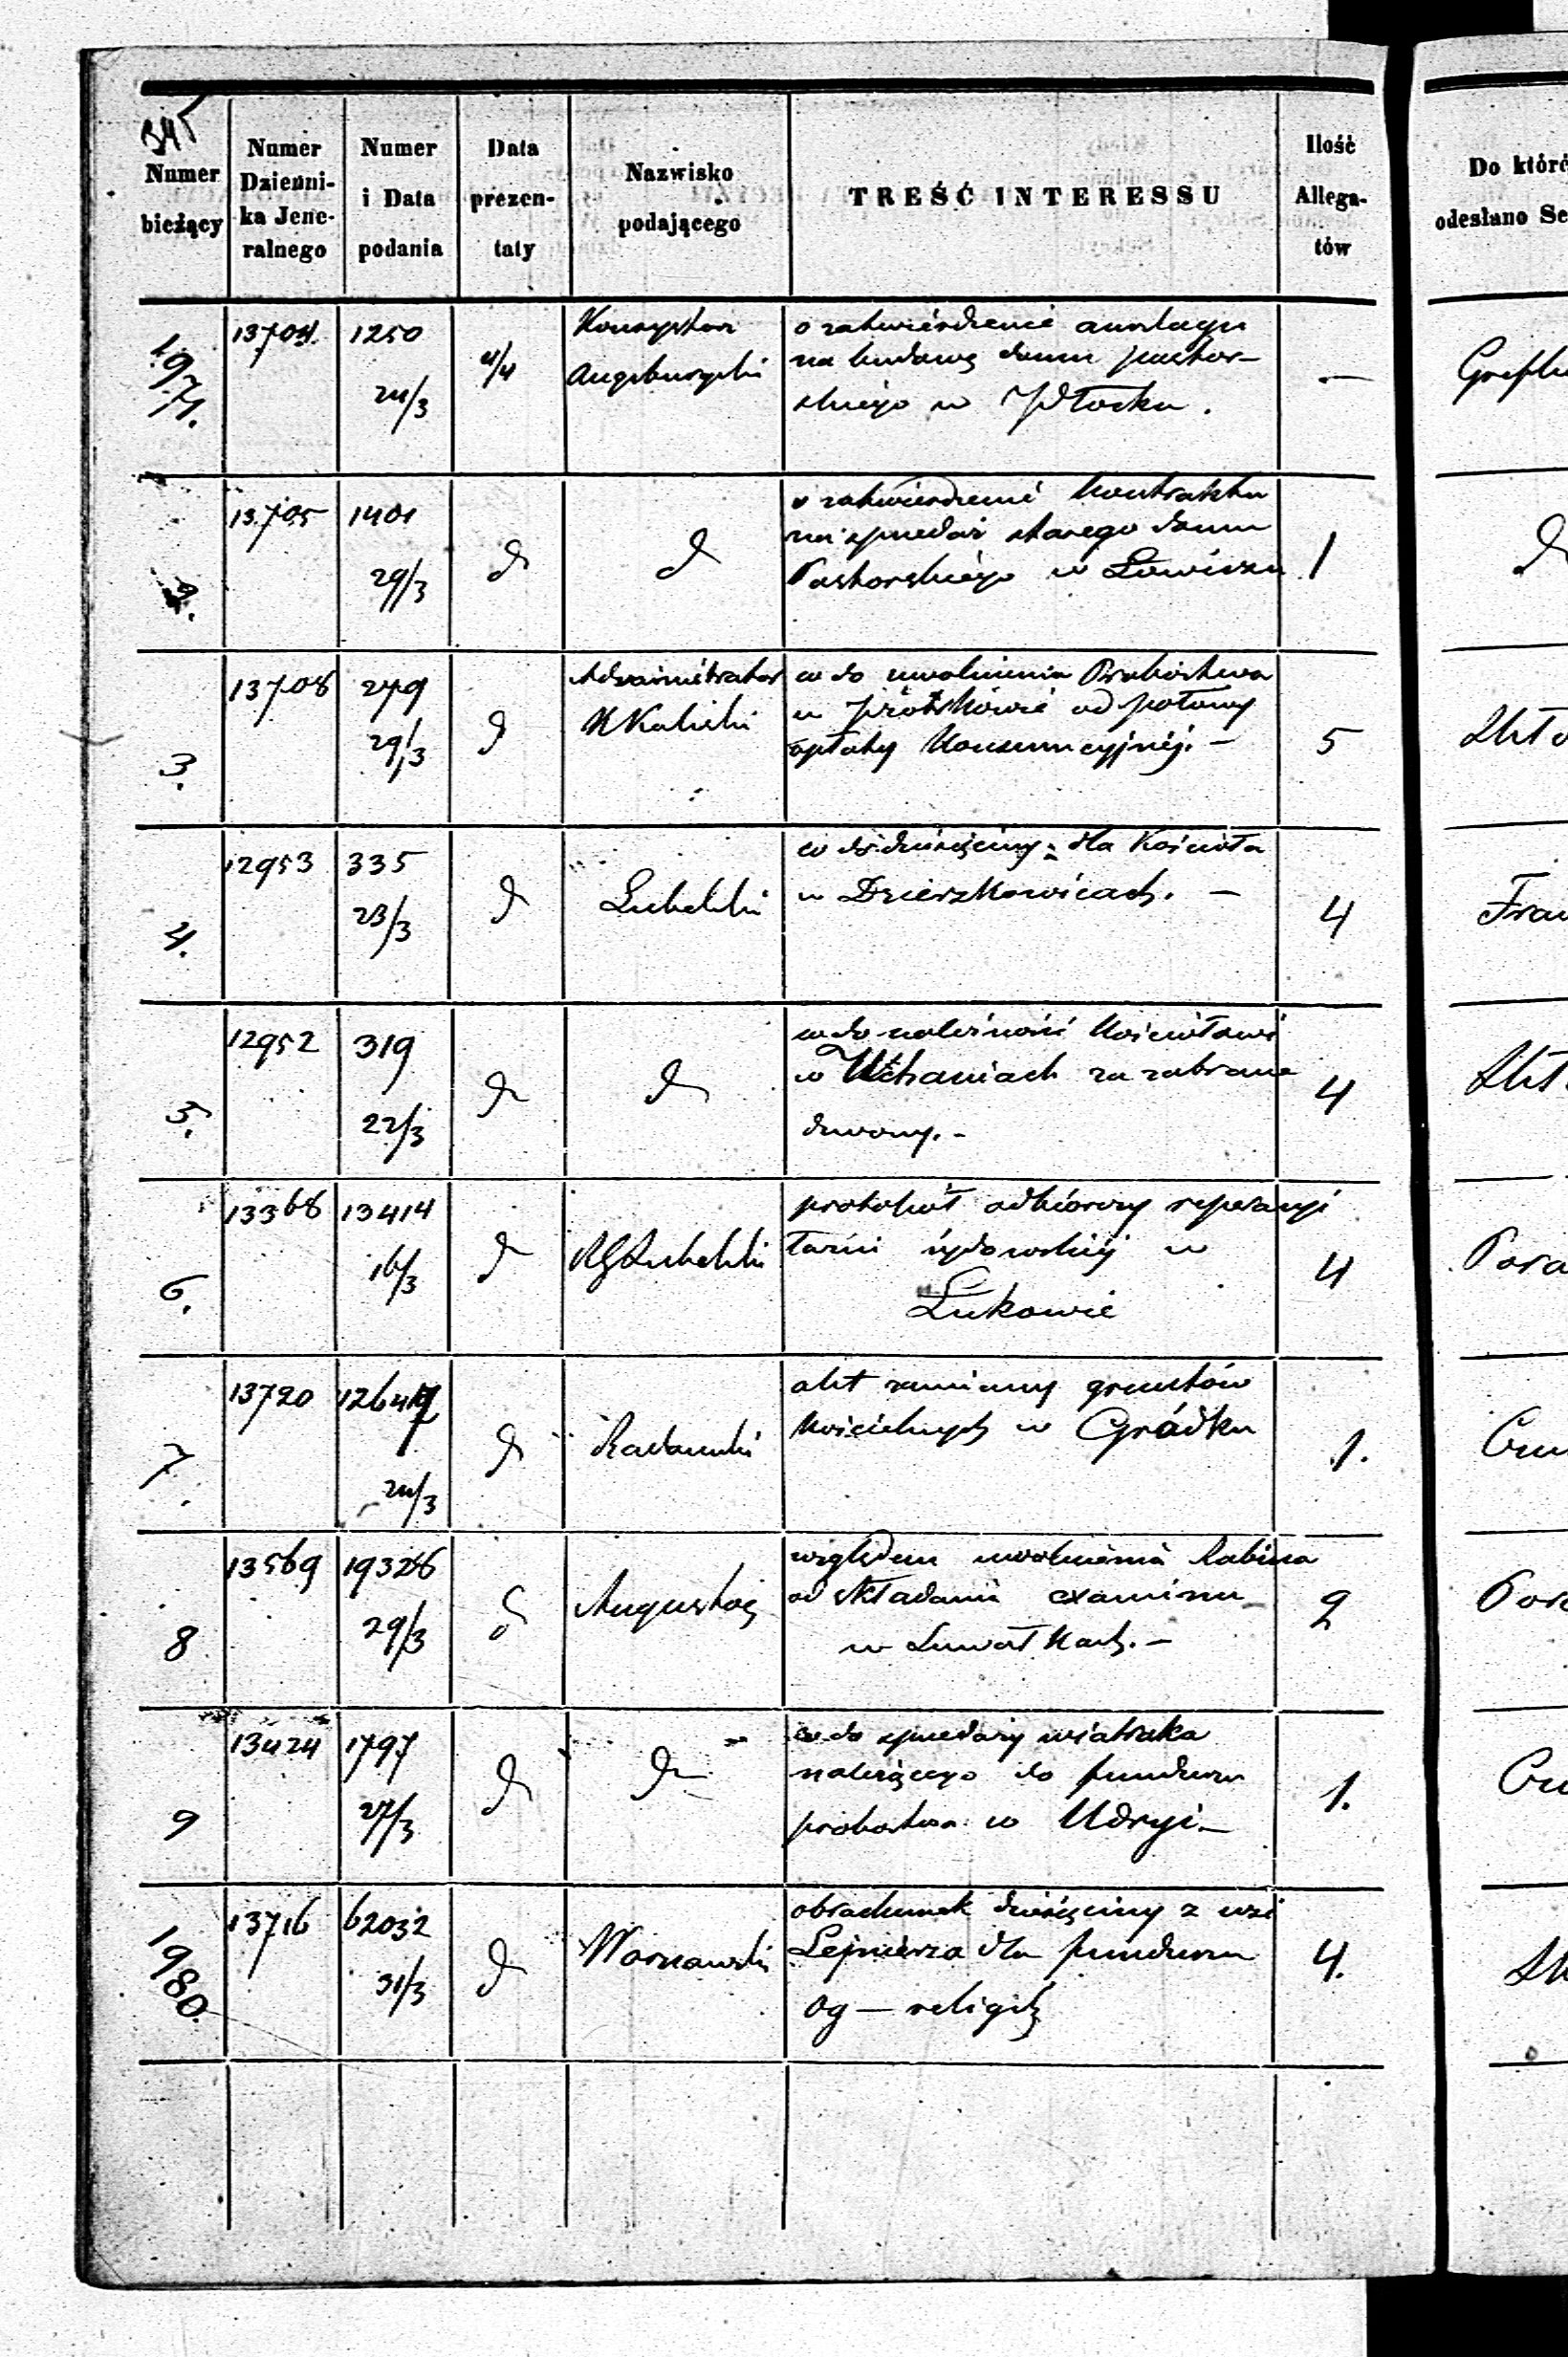 345
Numer bieżący
Numer Dzienni-ka Jene-ralnego
Numer i Data podania
Data prezen-taty
Nazwisko podającego
TREŚĆ INTERESSU
Ilość Allega-tów
Do któré
odesłano Se
1971.
13704.
1250
24/3
4/4
Konsystorz
Augsburgski
o zatwierdzenie anszlagu
na budowę domu pastor-
skiego w Płocku.
—
2.
13705
1401
29/3
d
d
o zatwierdzenie kontraktu
na sprzedaż starego domu
Pastorskiego w Łowiczu
1
d
3.
13708
279
29/3
d
Administrator
co do uwolnienia Probostwa
w Piotrkowie od połowy
opłaty Konsumcyjnéj. —
5
4.
12953
335
23/3
d
Lubelski
co do dziesięciny dla Kościoła
w Dzierzkowicach. —
4
5.
12952
319
22/3
d
d
co do należności Kościołowi
w Uchaniach za zabrane
dzwony. -
4
6.
13368
13414
16/3
d
RGLubelski
protokół odbiorczy reperacyi
łaźni żydowskiéj w
Łukowie
4
7.
13720
24/3
d
Radomski
akt zamiany gruntów
Kościelnych w Grádku
1.
8
13569
19328
29/3
d
Augustow
względem uwolnienia Rabina
od składania examinu
w Suwałkach. —
2
9
13424
1797
27/3
d
d
co do sprzedaży wiatraka
należącego do funduszu
probostwa w Udryi —
1.
1980.
13716
62032
31/3
d
Warszawski
obrachunek dziesięciny z wsi
dla funduszu
Og — religij
4.